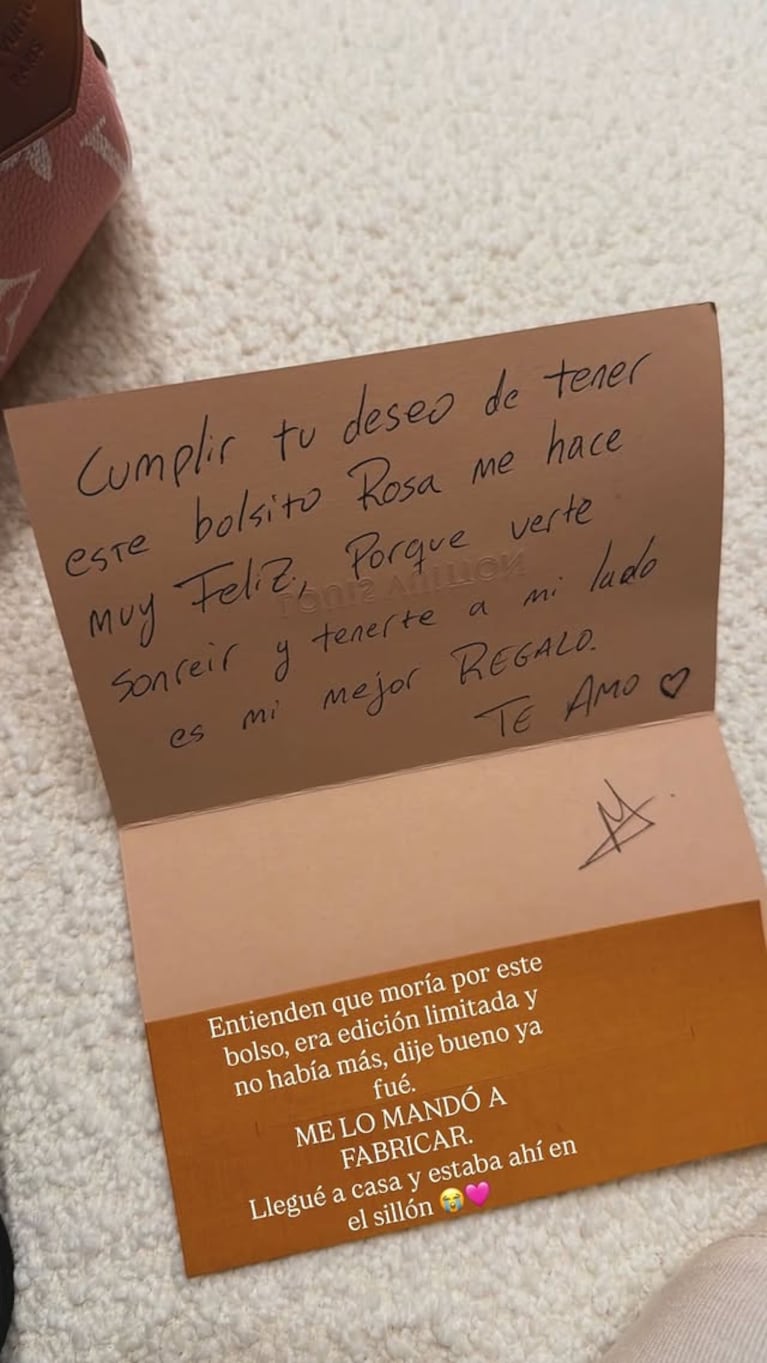 VUITTON
PARIS
Cumplir tu deseo de tener
este bolsito Rosa me hace
muy Feliz, Porque verte
sonreir y tenerte a mi lado
es mi mejor REGALO.
TE AMO ♡
LOUIS VUITTON
Entienden que moría por este
bolso, era edición limitada y
no había más, dije bueno ya
fué.
ME LO MANDÓ A
FABRICAR.
Llegué a casa y estaba ahí en
el sillón 😭🩷